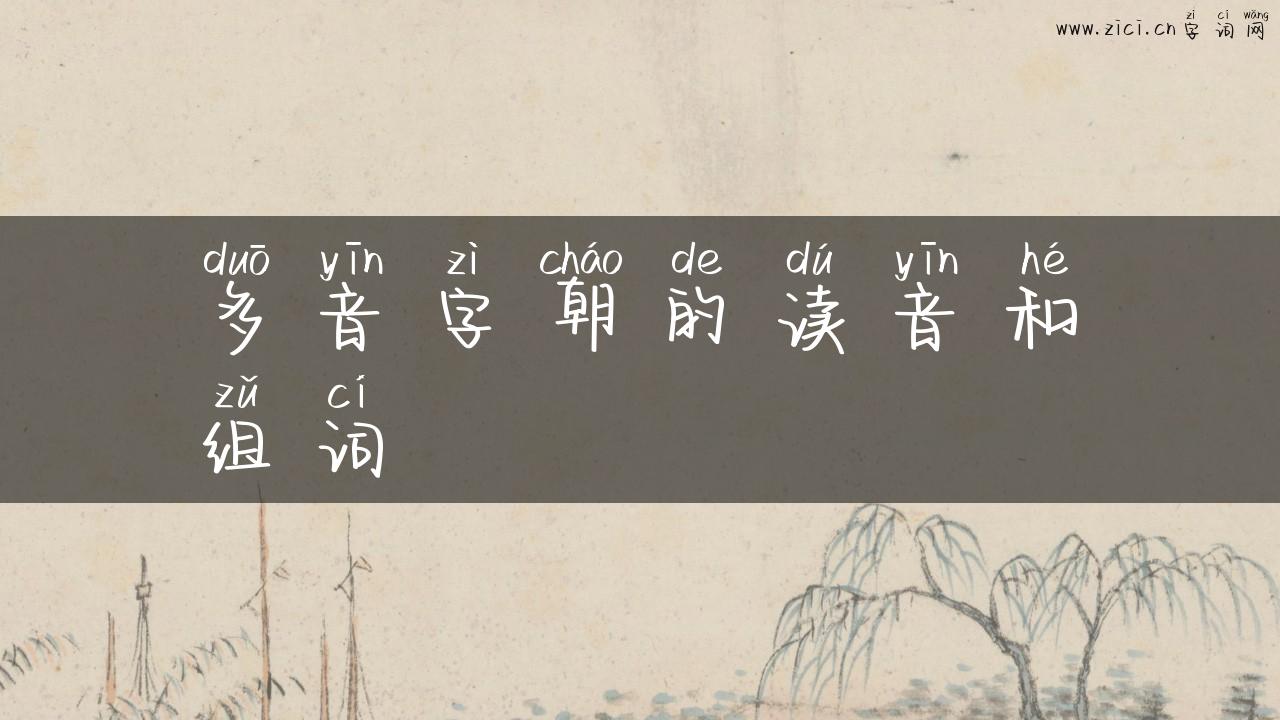 zì cí wǎng
www.zici.cn 字词网
duō yīn zì cháo de dú yīn hé
多音字朝的读音和
zǔ cí
组词